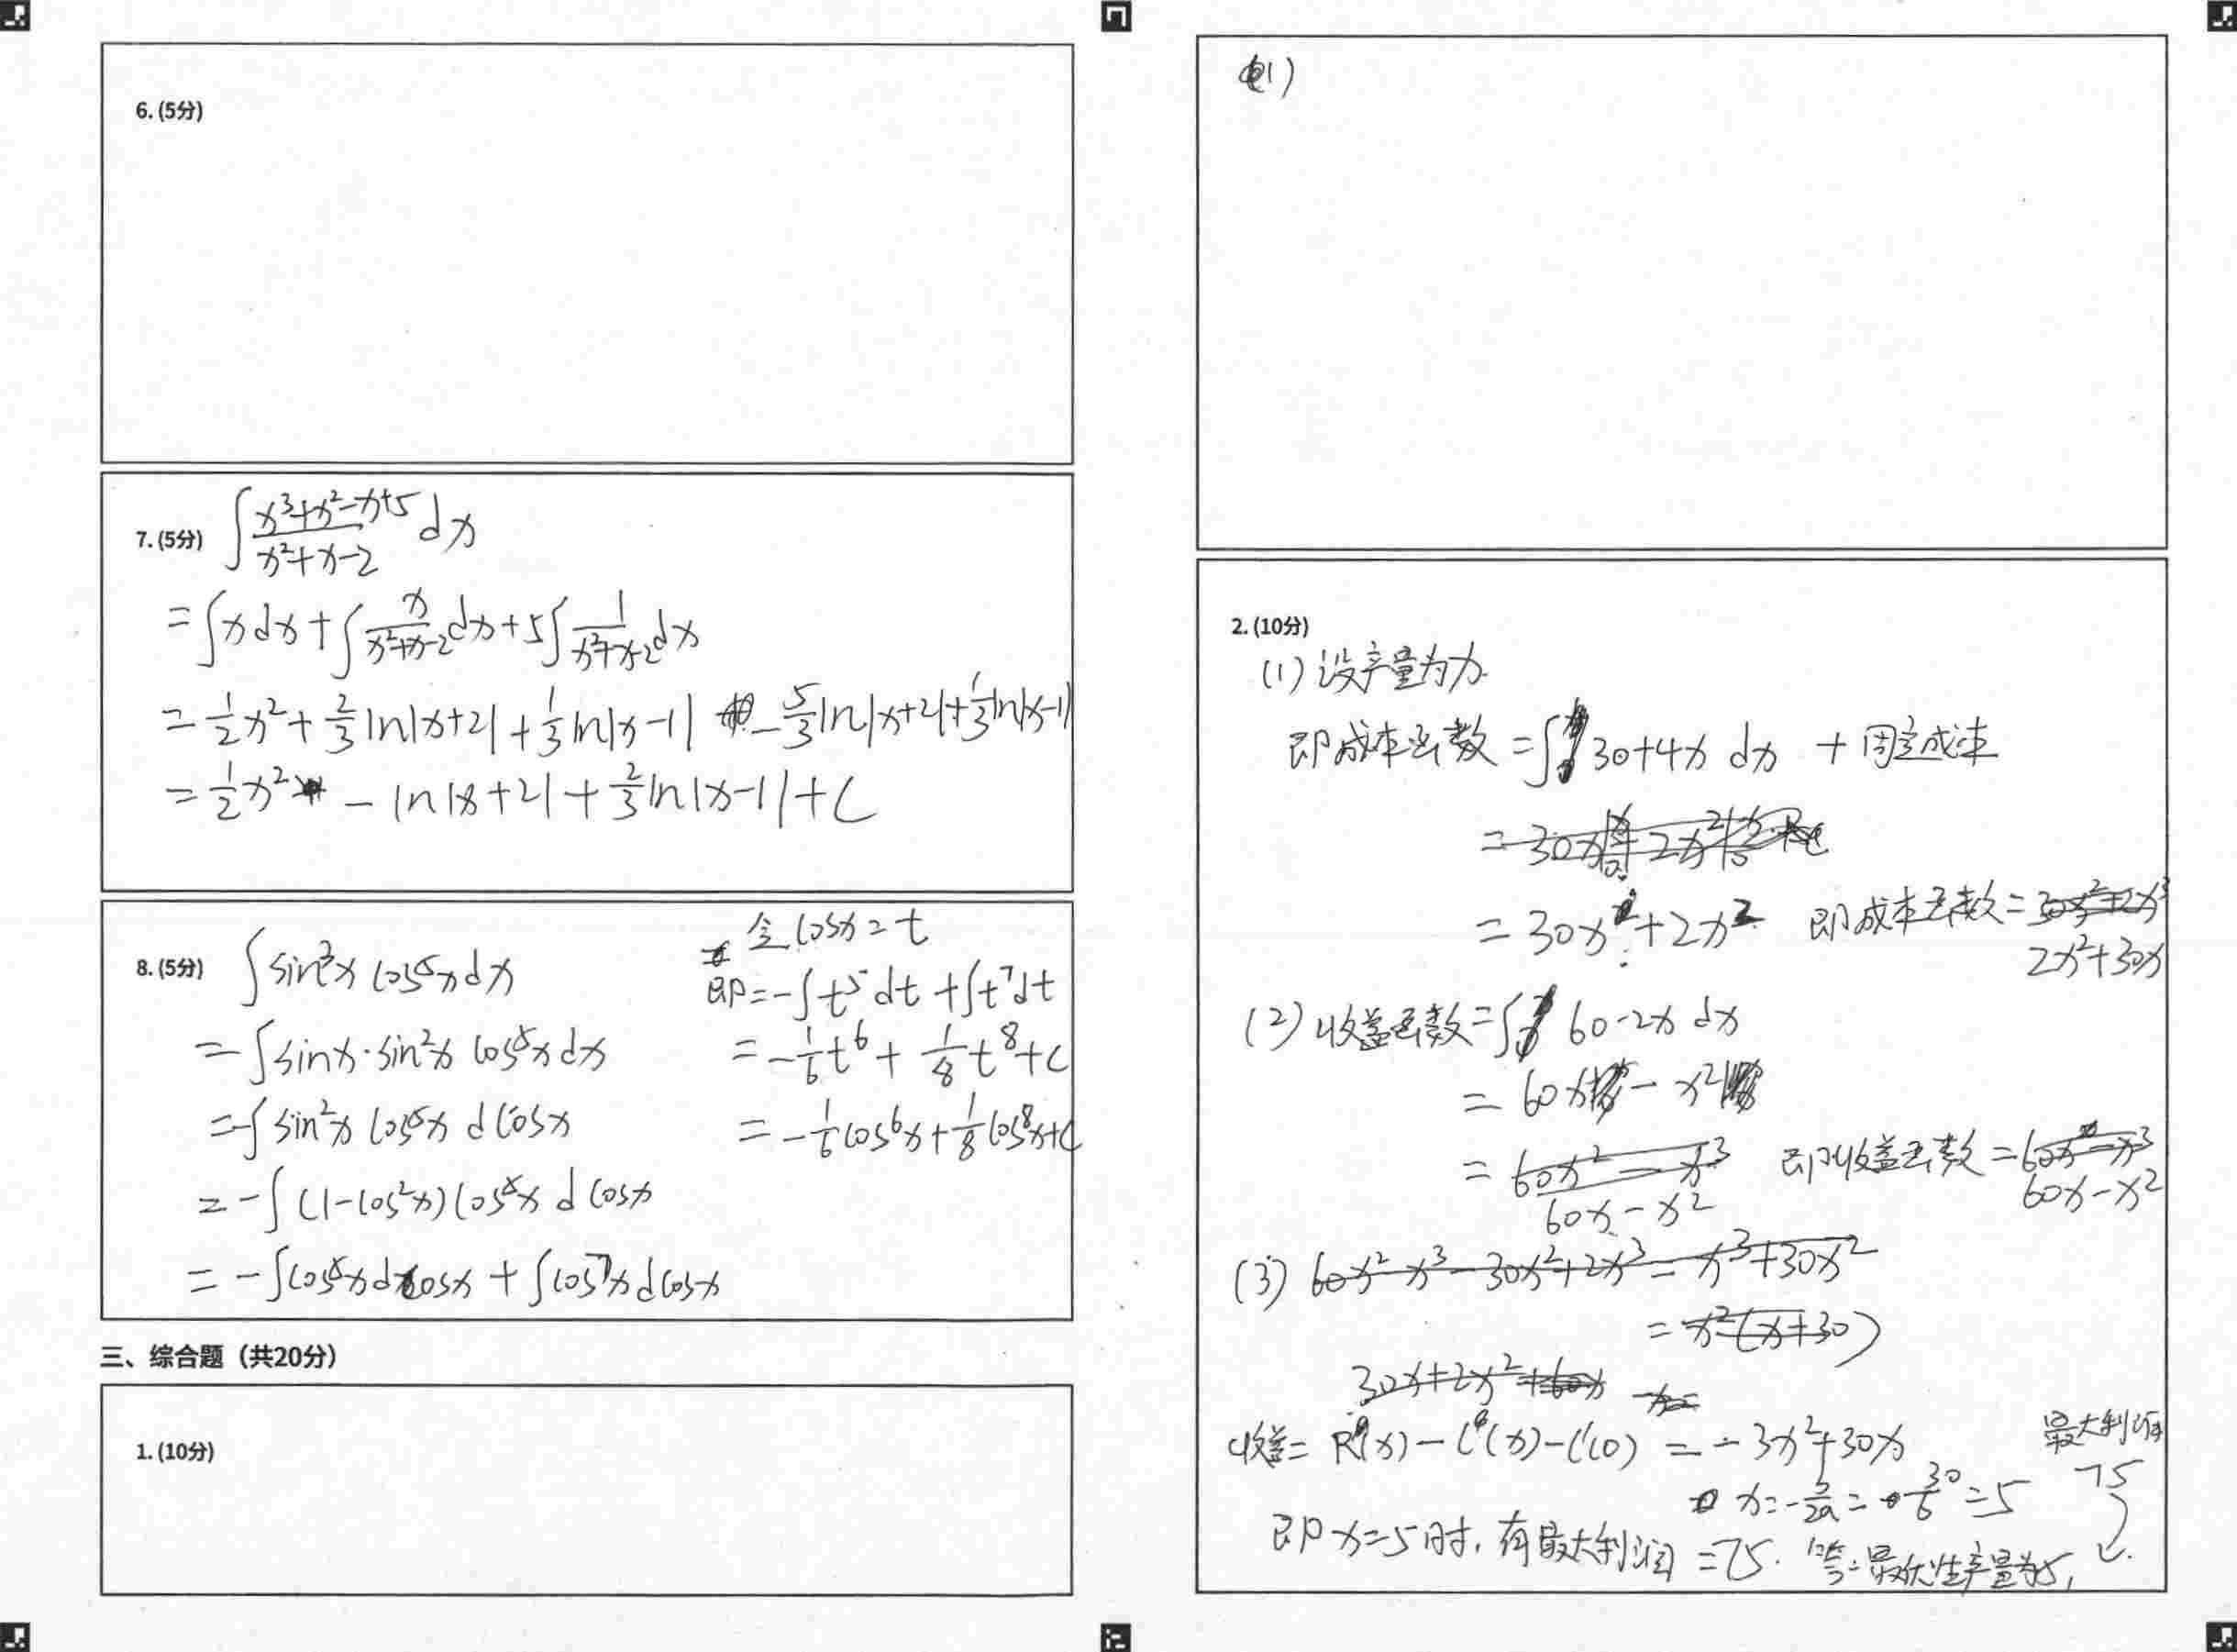 6. (5分)
7. (5分) ∫ (x³+x²-x+5)/(x²+x-2) dx
= ∫x dx + ∫ x/(x²+x-2) dx + 5∫ 1/(x²+x-2) dx
= 1/2 x² + 2/3 ln|x+2| + 1/3 ln|x-1| - 5/3 ln|x+2| + 1/3 ln|x-1|
= 1/2 x² - ln|x+2| + 2/3 ln|x-1| + C
8. (5分) ∫ sin³x cos⁵x dx
= ∫ sinx·sin²x cos⁵x dx
= -∫ sin²x cos⁵x d cosx
= -∫ (1-cos²x) cos⁵x d cosx
= -∫ cos⁵x d cosx + ∫ cos⁷x d cosx
令 cosx = t
即 = -∫ t⁵ dt + ∫ t⁷ dt
= -1/6 t⁶ + 1/8 t⁸ + C
= -1/6 cos⁶x + 1/8 cos⁸x + C
三、综合题（共20分）
1. (10分)
(1)
2. (10分)
(1) 设产量为x
即成本函数 = ∫ 30+4x dx + 固定成本
= 30x + 2x² 即成本函数 = 30x²+2x³
2x²+30x
(2) 收益函数 = ∫ 60-2x dx
= 60x - x²
= 60x² - x³ 即收益函数 = 60x² - x³
60x - x² 60x - x²
(3) 60x² - x³ - 30x² + 2x³ = x³ + 30x²
= x²(x+30)
30x+2x²+60x
收益 = R(x) - C(x) - C(0) = -3x² + 30x 最大利润
x = -b/2a = 30/6 = 5 75
即 x=5时, 有最大利润 = 75. 答: 最优生产量为5,